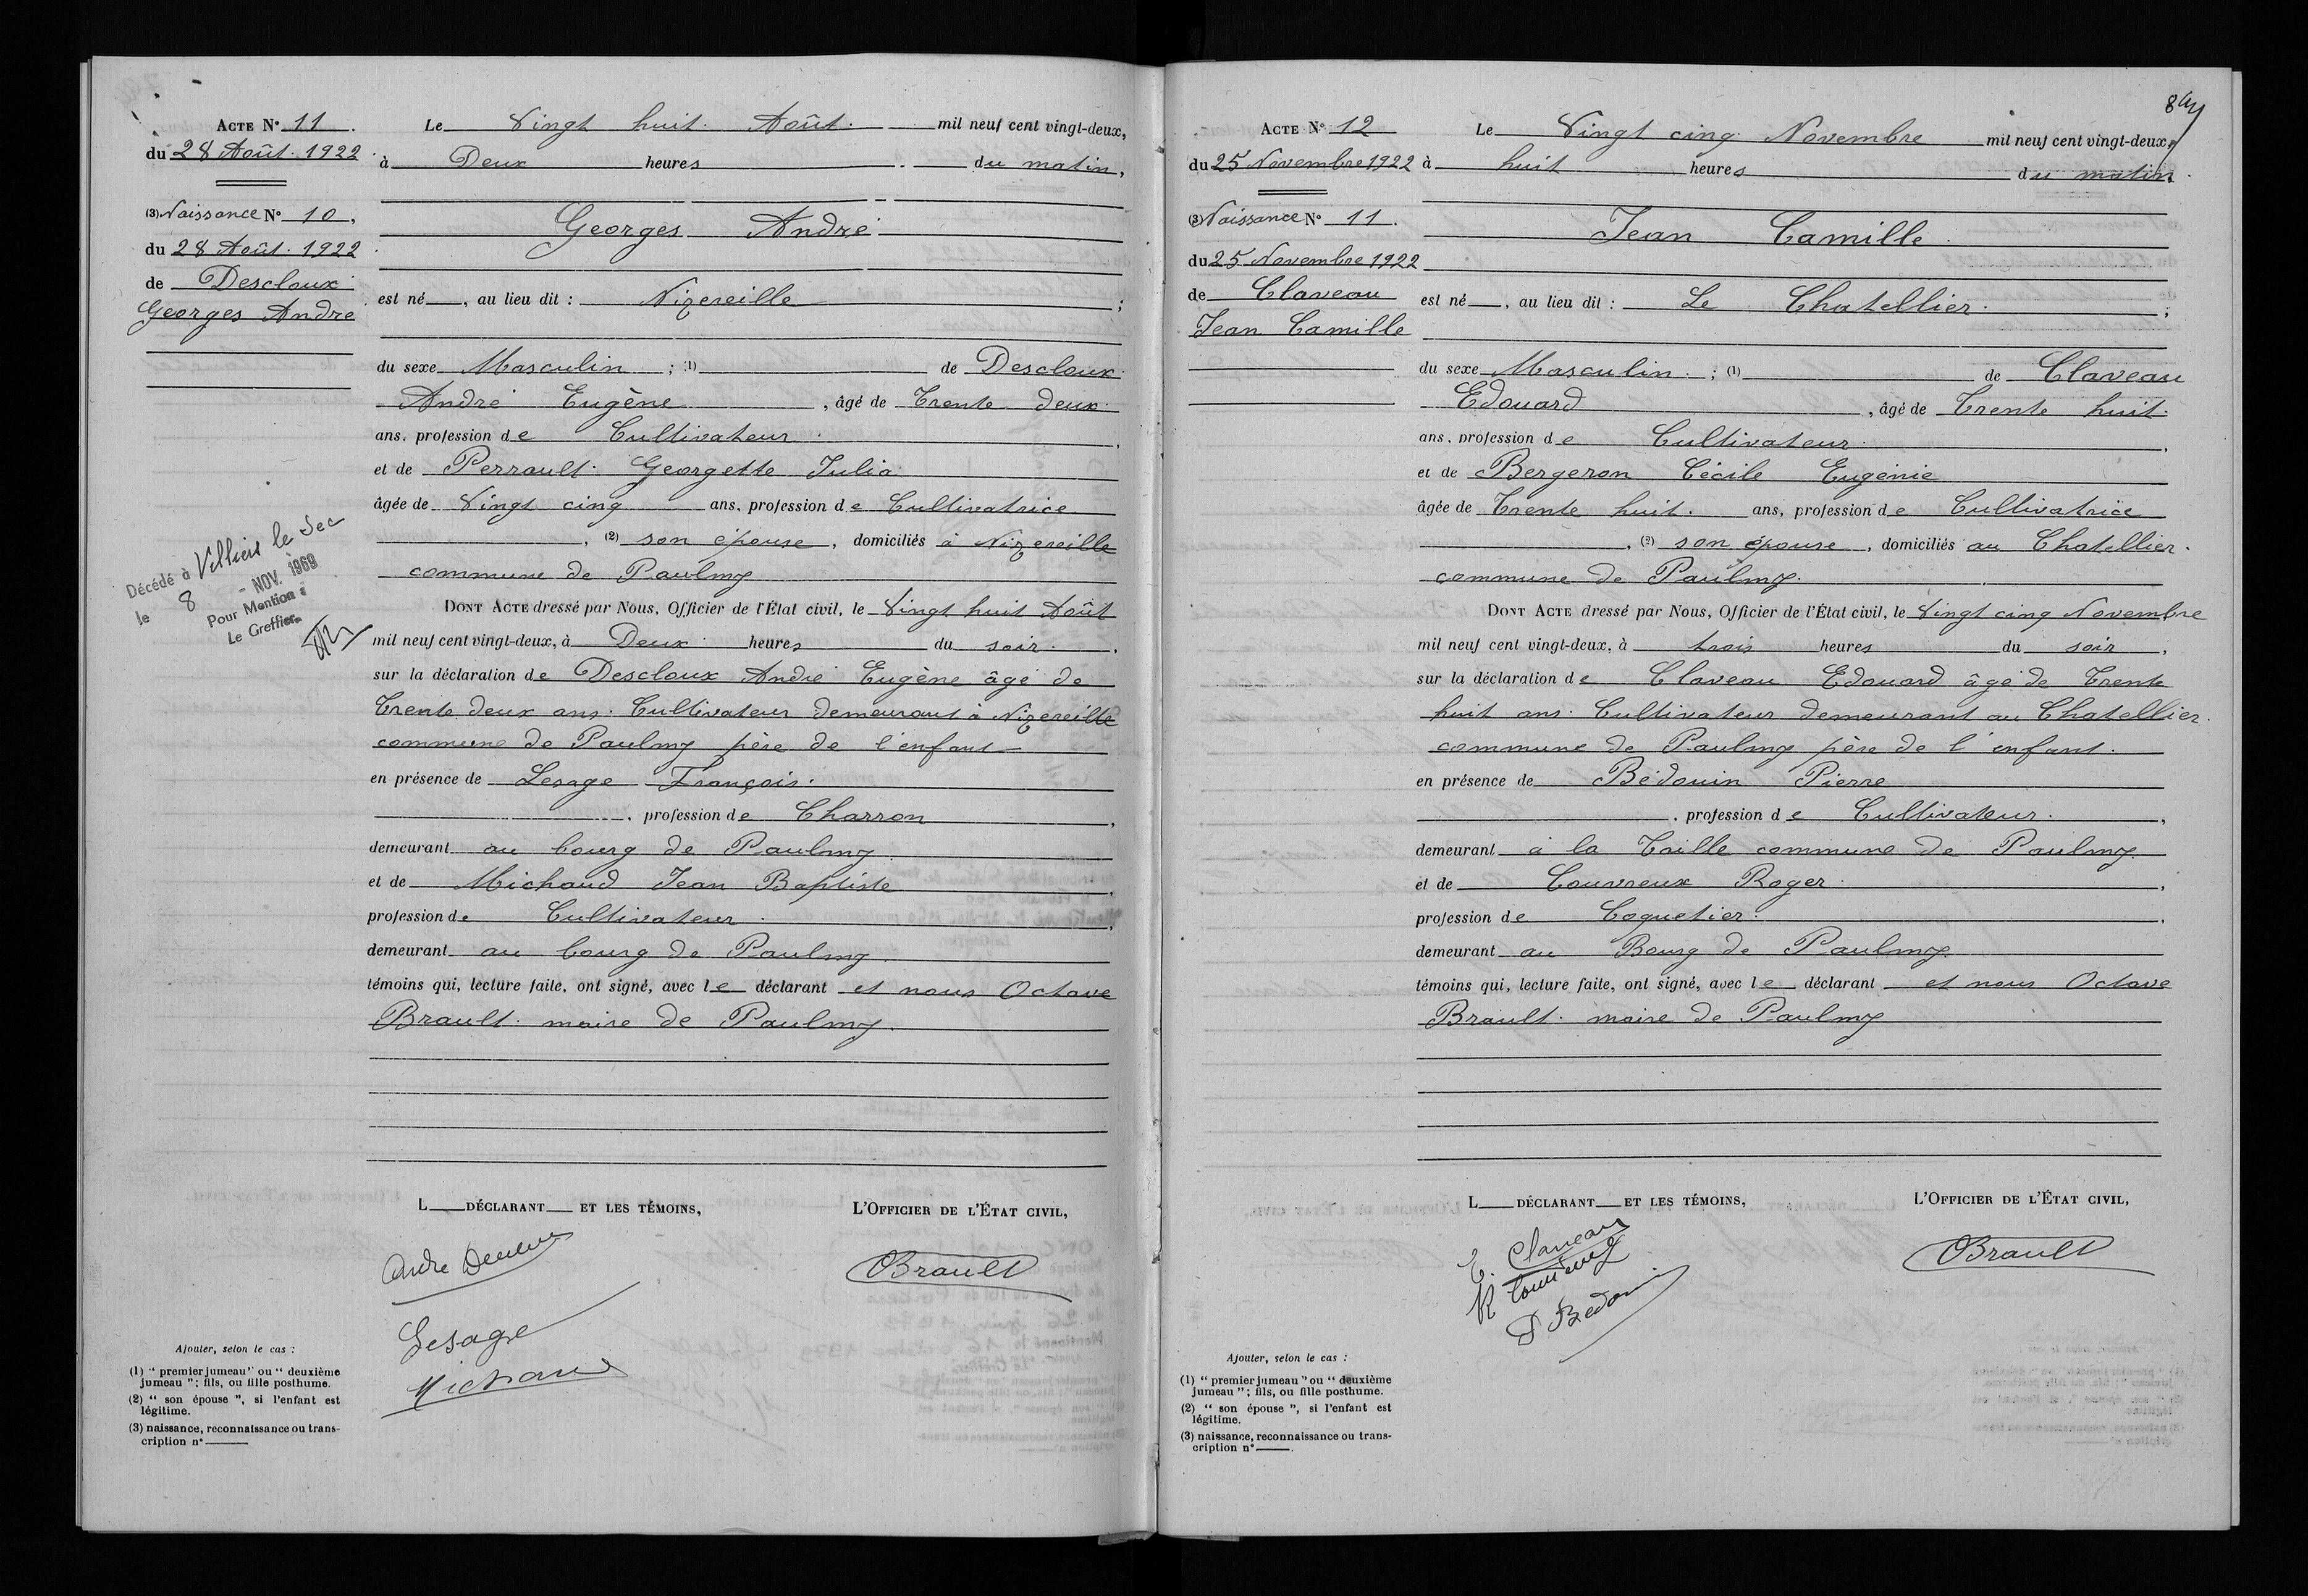 Acte N° 11.
du 28 Août. 1922
(3) Naissance N° 10,
du 28 Août. 1922
de Descloux
Georges André
Décédé à Villiers le Sec
le 8 - NOV. 1969
Pour Mention :
Le Greffier
Le Vingt huit Août mil neuf cent vingt-deux,
à Deux heures du matin,
Georges André
est né, au lieu dit : Nizereille ;
du sexe Masculin ; (1) de Descloux
André Eugène, âgé de Trente deux
ans, profession de Cultivateur.
et de Perrault Georgette Julia
âgée de Vingt cinq ans, profession de Cultivatrice
, (2) son épouse, domiciliés à Nizereille
commune de Paulmy
Dont Acte dressé par Nous, Officier de l'État civil, le Vingt huit Août
mil neuf cent vingt-deux, à Deux heures du soir.
sur la déclaration de Descloux André Eugène âgé de
Trente deux ans. Cultivateur demeurant à Nizereille
commune de Paulmy père de l'enfant
en présence de Lesage François.
, profession de Charron,
demeurant au bourg de Paulmy
et de Michaud Jean Baptiste,
profession de Cultivateur.
demeurant au bourg de Paulmy.
témoins qui, lecture faite, ont signé, avec le déclarant et nous Octave
Brault. maire de Paulmy.
L déclarant et les témoins,
L'Officier de l'État civil,
Lesage
Michaud
Brault
Ajouter, selon le cas :
(1) " premier jumeau" ou " deuxième
jumeau " ; fils, ou fille posthume.
(2) " son épouse ", si l'enfant est
légitime.
(3) naissance, reconnaissance ou trans-
cription n°
Acte N° 12
du 25 Novembre 1922
(3) Naissance N° 11.
du 25 Novembre 1922
de Claveau
Jean Camille
Le Vingt cinq Novembre mil neuf cent vingt-deux,
à huit heures du matin.
Jean Camille.
est né, au lieu dit : Le Chatellier. ;
du sexe Masculin. ; (1) de Claveau
Edouard, âgé de Trente huit.
ans, profession de Cultivateur.
et de Bergeron Cécile Eugénie
âgée de Trente huit. ans, profession de Cultivatrice
, (2) son épouse, domiciliés au Chatellier.
commune de Paulmy.
Dont Acte dressé par Nous, Officier de l'État civil, le Vingt cinq Novembre
mil neuf cent vingt-deux, à trois heures du soir,
sur la déclaration de Claveau Edouard âgé de Trente
huit ans. Cultivateur demeurant au Chatellier.
commune de Paulmy père de l'enfant.
en présence de Bédouin Pierre
, profession de Cultivateur.,
demeurant à la Taille commune de Paulmy.
et de Couvreux Roger.,
profession de Coquetier.
demeurant au Bourg de Paulmy.
témoins qui, lecture faite, ont signé, avec le déclarant et nous Octave
Brault. maire de Paulmy
L déclarant et les témoins,
L'Officier de l'État civil,
E. Claveau
P Bedouin
Brault
Ajouter, selon le cas :
(1) " premier jumeau " ou " deuxième
jumeau " ; fils, ou fille posthume.
(2) " son épouse ", si l'enfant est
légitime.
(3) naissance, reconnaissance ou trans-
cription n°